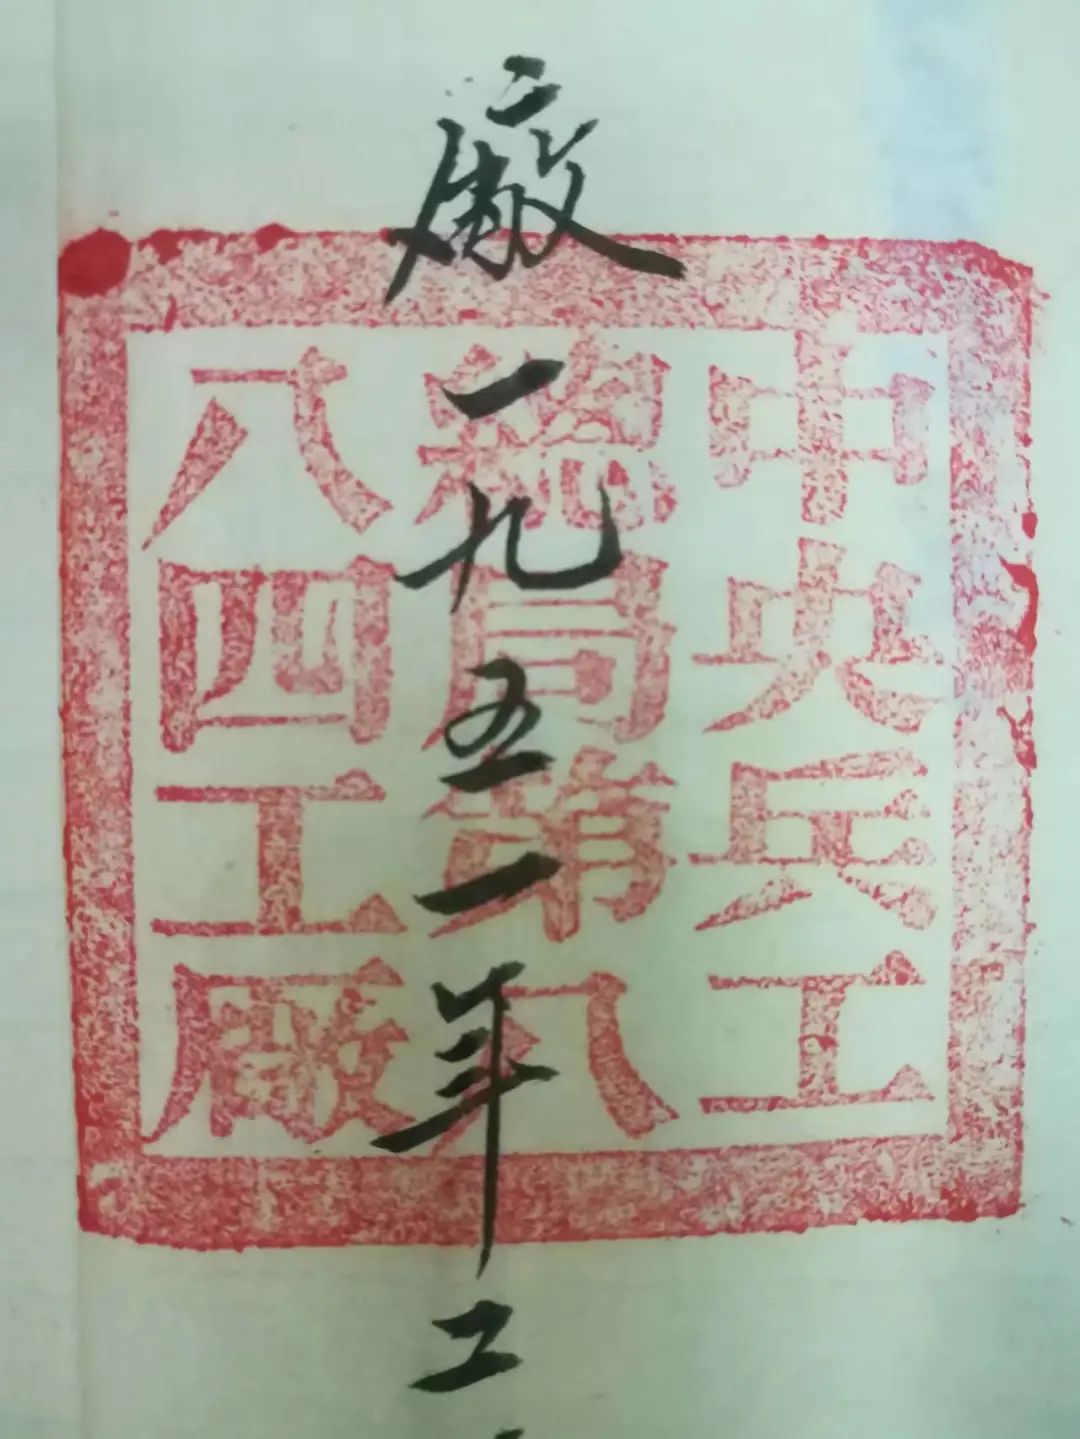 廠一九五一年二
中央兵工
總局第八
八四工廠